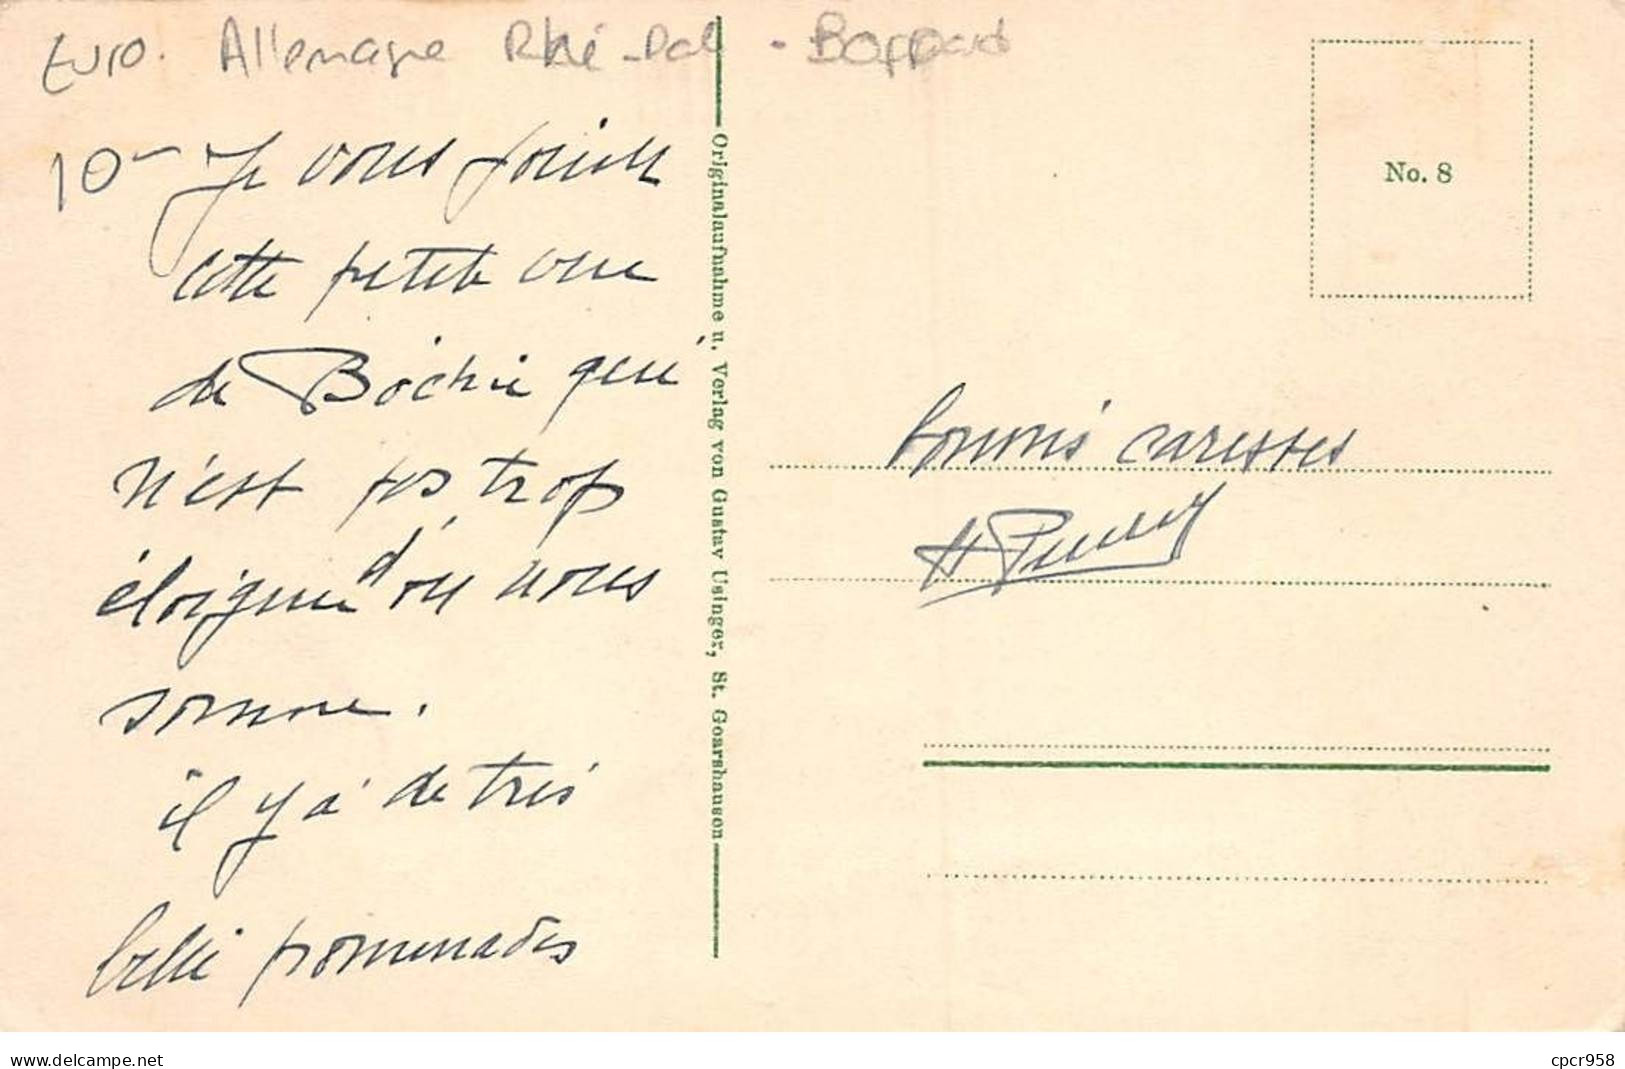 Euro. Allemagne Rhé-Pal - Boppard
10- Je vous joins
cette petite vue
de Bochie qui
n'est pas trop
éloignée d'où nous
somme.
il y á de très
belle promenades
Originalaufnahme u. Verlag von Gustav Usinger, St. Goarshausen
No. 8
bonnes caresses
www.delcampe.net
cpcr958